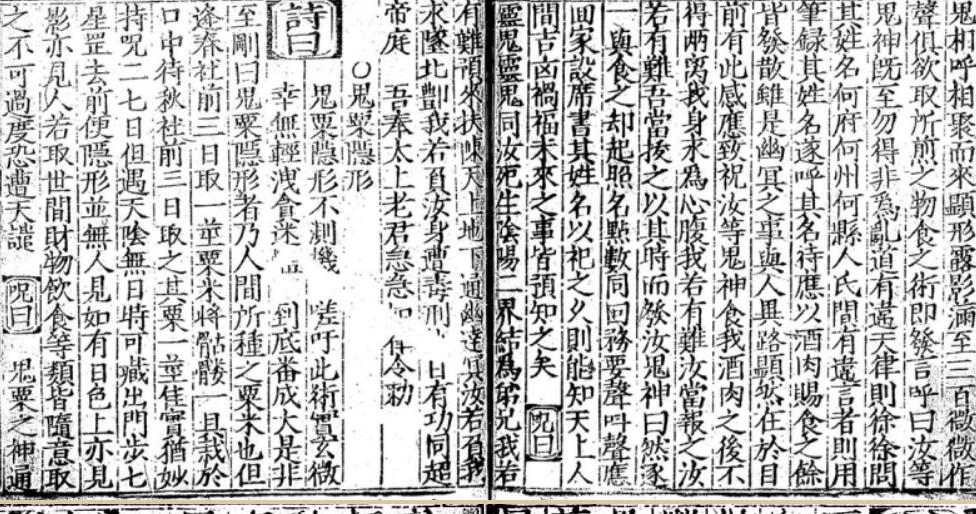 鬼相呼相聚而來顯形露影滿至三百微微作
聲俱欲取所煎之物食之術即發言呼曰汝等
鬼神旣至勿得非爲亂道有違天律則徐徐問
其姓名何府何州何縣人氏間有違言者則用
筆録其姓名遂呼其名待應以酒肉賜食之餘
皆發散雖是幽冥之事與人異路顯然在於目
前有此感應致祝汝等鬼神食我酒肉之後不
得两离我身求為心腹我若有難汝當報之汝
若有難吾當拔之以其時而發汝鬼神曰然遂
一與食之却起照名點數同回務要聲叫聲應
回家設席書其姓名以祀之久則能知天上人
間吉凶禍福未來之事皆預知之矣 咒曰
靈鬼靈鬼同汝死生陰陽一界結為弟兄我若
有難須來扶
求墜北酆我若負汝身遭 有功同起
帝庭 吾奉太上老君急急 令勑
○鬼粟隱形
詩曰 鬼粟隱形不剗機 嗟吁此術實玄微
幸無輕洩貪迷 到底番成大是非
至剛曰鬼粟隱形者乃人間所種之粟米也但
逢春社前三日取一莖粟米將骷髏一具栽於
口中待秋社前三日取之其粟一莖隹實猶妙
持咒二七日但遇天陰無日時可藏出門步七
星罡去前便隱形並無人見如有日色上亦見
影亦見人若取世間財物飲食等類皆隨意取
之不可過度恐遭天譴 咒曰 鬼粟之神通